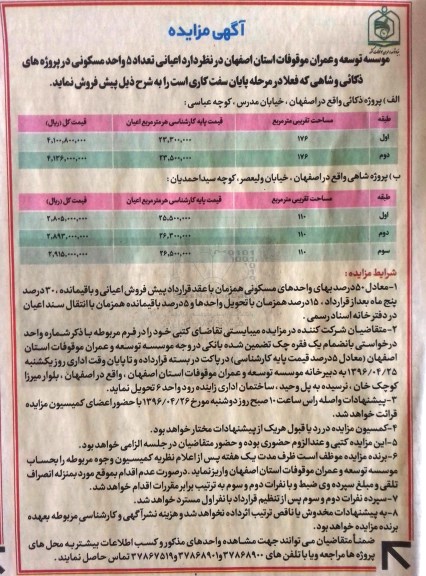 آگهی مزایده
موسسه توسعه و عمران موقوفات استان اصفهان در نظر دارد اعیانی تعداد ۵ واحد مسکونی در پروژه های
ذکائی و شاهی که فعلا در مرحله پایان سفت کاری است را به شرح ذیل پیش فروش نماید.
الف) پروژه ذکائی واقع در اصفهان ، خیابان مدرس ، کوچه عباسی:
طبقه مساحت تقریبی متر مربع قیمت پایه کارشناسی هر متر مربع اعیان قیمت کل (ریال)
اول ۱۷۶ ۲۳,۳۰۰,۰۰۰ ۴,۱۰۰,۸۰۰,۰۰۰
دوم ۱۷۶ ۲۳,۵۰۰,۰۰۰ ۴,۱۳۶,۰۰۰,۰۰۰
ب) پروژه شاهی واقع در اصفهان ، خیابان ولیعصر، کوچه سیداحمدیان:
طبقه مساحت تقریبی متر مربع قیمت پایه کارشناسی هر متر مربع اعیان قیمت کل (ریال)
اول ۱۱۰ ۲۵,۵۰۰,۰۰۰ ۲,۸۰۵,۰۰۰,۰۰۰
دوم ۱۱۰ ۲۶,۳۰۰,۰۰۰ ۲,۸۹۳,۰۰۰,۰۰۰
سوم ۱۱۰ ۲۶,۵۰۰,۰۰۰ ۲,۹۱۵,۰۰۰,۰۰۰
شرایط مزایده :
۱-معادل ۵۰درصد بهای واحدهای مسکونی همزمان با عقد قرارداد پیش فروش اعیانی و باقیمانده ، ۳۰درصد
پنج ماه بعد از قرارداد ، ۱۵درصد همزمان با تحویل واحدها و ۵درصد باقیمانده همزمان با انتقال سند اعیان
در دفترخانه اسناد رسمی .
۲-متقاضیان شرکت کننده در مزایده میبایستی تقاضای کتبی خود را در فرم مربوطه با ذکر شماره واحد
درخواستی بانضمام یک فقره چک تضمین شده بانکی در وجه موسسه توسعه و عمران موقوفات استان
اصفهان (معادل ۵درصد قیمت پایه کارشناسی) در پاکت در بسته قرار داده و تا پایان وقت اداری روز یکشنبه
۱۳۹۶/۰۴/۲۵ به دبیرخانه موسسه توسعه و عمران موقوفات استان اصفهان ، واقع در اصفهان ، بلوار میرزا
کوچک خان ، نرسیده به پل وحید ، ساختمان اداری زاینده رود واحد ۶ تحویل نماید.
۳-پیشنهادات واصله راس ساعت ۱۰ صبح روز دوشنبه مورخ ۱۳۹۶/۰۴/۲۶ با حضور اعضای کمیسیون مزایده
قرائت خواهد شد.
۴-کمسیون مزایده در رد یا قبول هر یک از پیشنهادات مختار خواهد بود.
۵-این مزایده کتبی و عندالزوم حضوری بوده و حضور متقاضیان در جلسه الزامی خواهد بود.
۶-برنده مزایده موظف است ظرف مدت یک هفته پس از اعلام نظریه کمیسیون وجوه مربوطه را بحساب
موسسه توسعه و عمران موقوفات استان اصفهان واریز نماید .درصورت عدم اقدام بموقع مورد بمنزله انصراف
تلقی و مبلغ سپرده وی ضبط و با نفرات دوم و سوم به ترتیب برابر مقررات اقدام خواهد شد.
۷-سپرده نفرات دوم و سوم پس از تنظیم قرارداد با نفر اول مسترد خواهد شد.
۸-به پیشنهادات مخدوش یا ناقص ترتیب اثر داده نخواهد شد و هزینه نشر آگهی و کارشناسی مربوطه بعهده
برنده مزایده خواهد بود.
ضمناً متقاضیان می توانند جهت مشاهده واحدهای مذکور و کسب اطلاعات بیشتر به محل های
پروژه ها مراجعه و یا با تلفن های ۳۷۸۶۸۹۰۰ و ۳۷۸۶۸۹۰۱ و ۳۷۸۶۷۵۱۹ تماس حاصل نمایند .